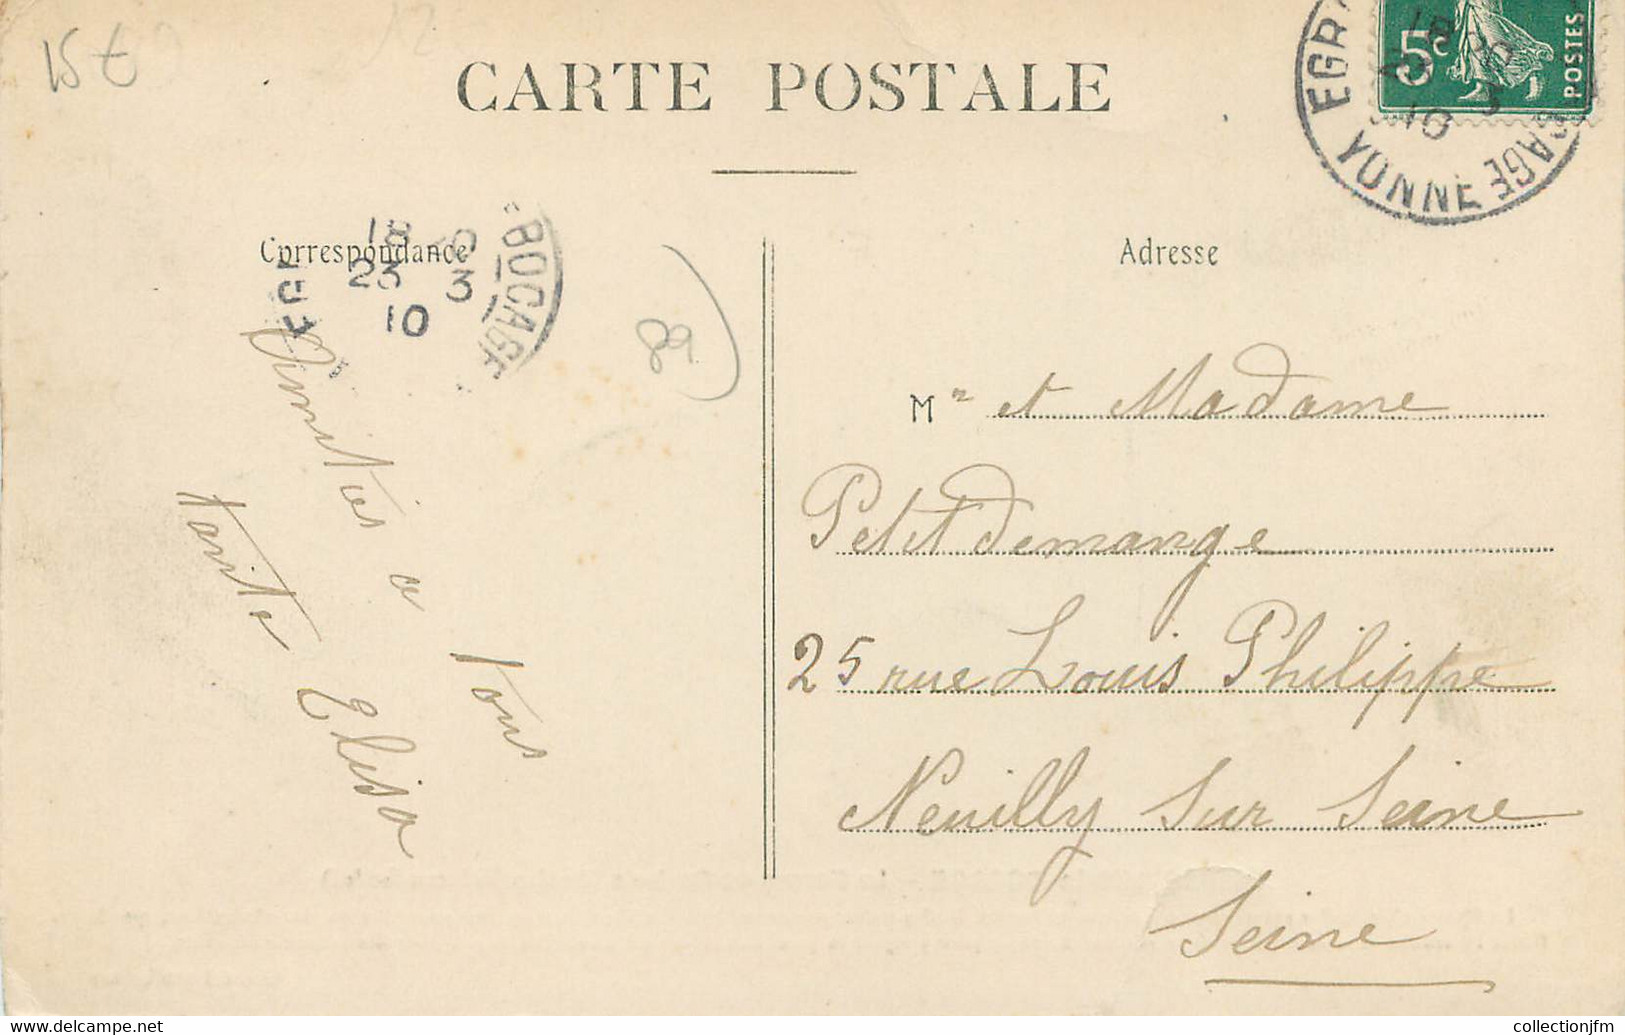 15€
CARTE POSTALE
5c
POSTES
EGR
BOCAGE
YONNE
10 3
Correspondance
18
23 3
10
BOCAGE
89
Adresse
Amitiés à tous
tante Elisa
Mr et Madame
Petitdemange
25 rue Louis Philippe
Neuilly sur Seine
Seine
collectionjfm